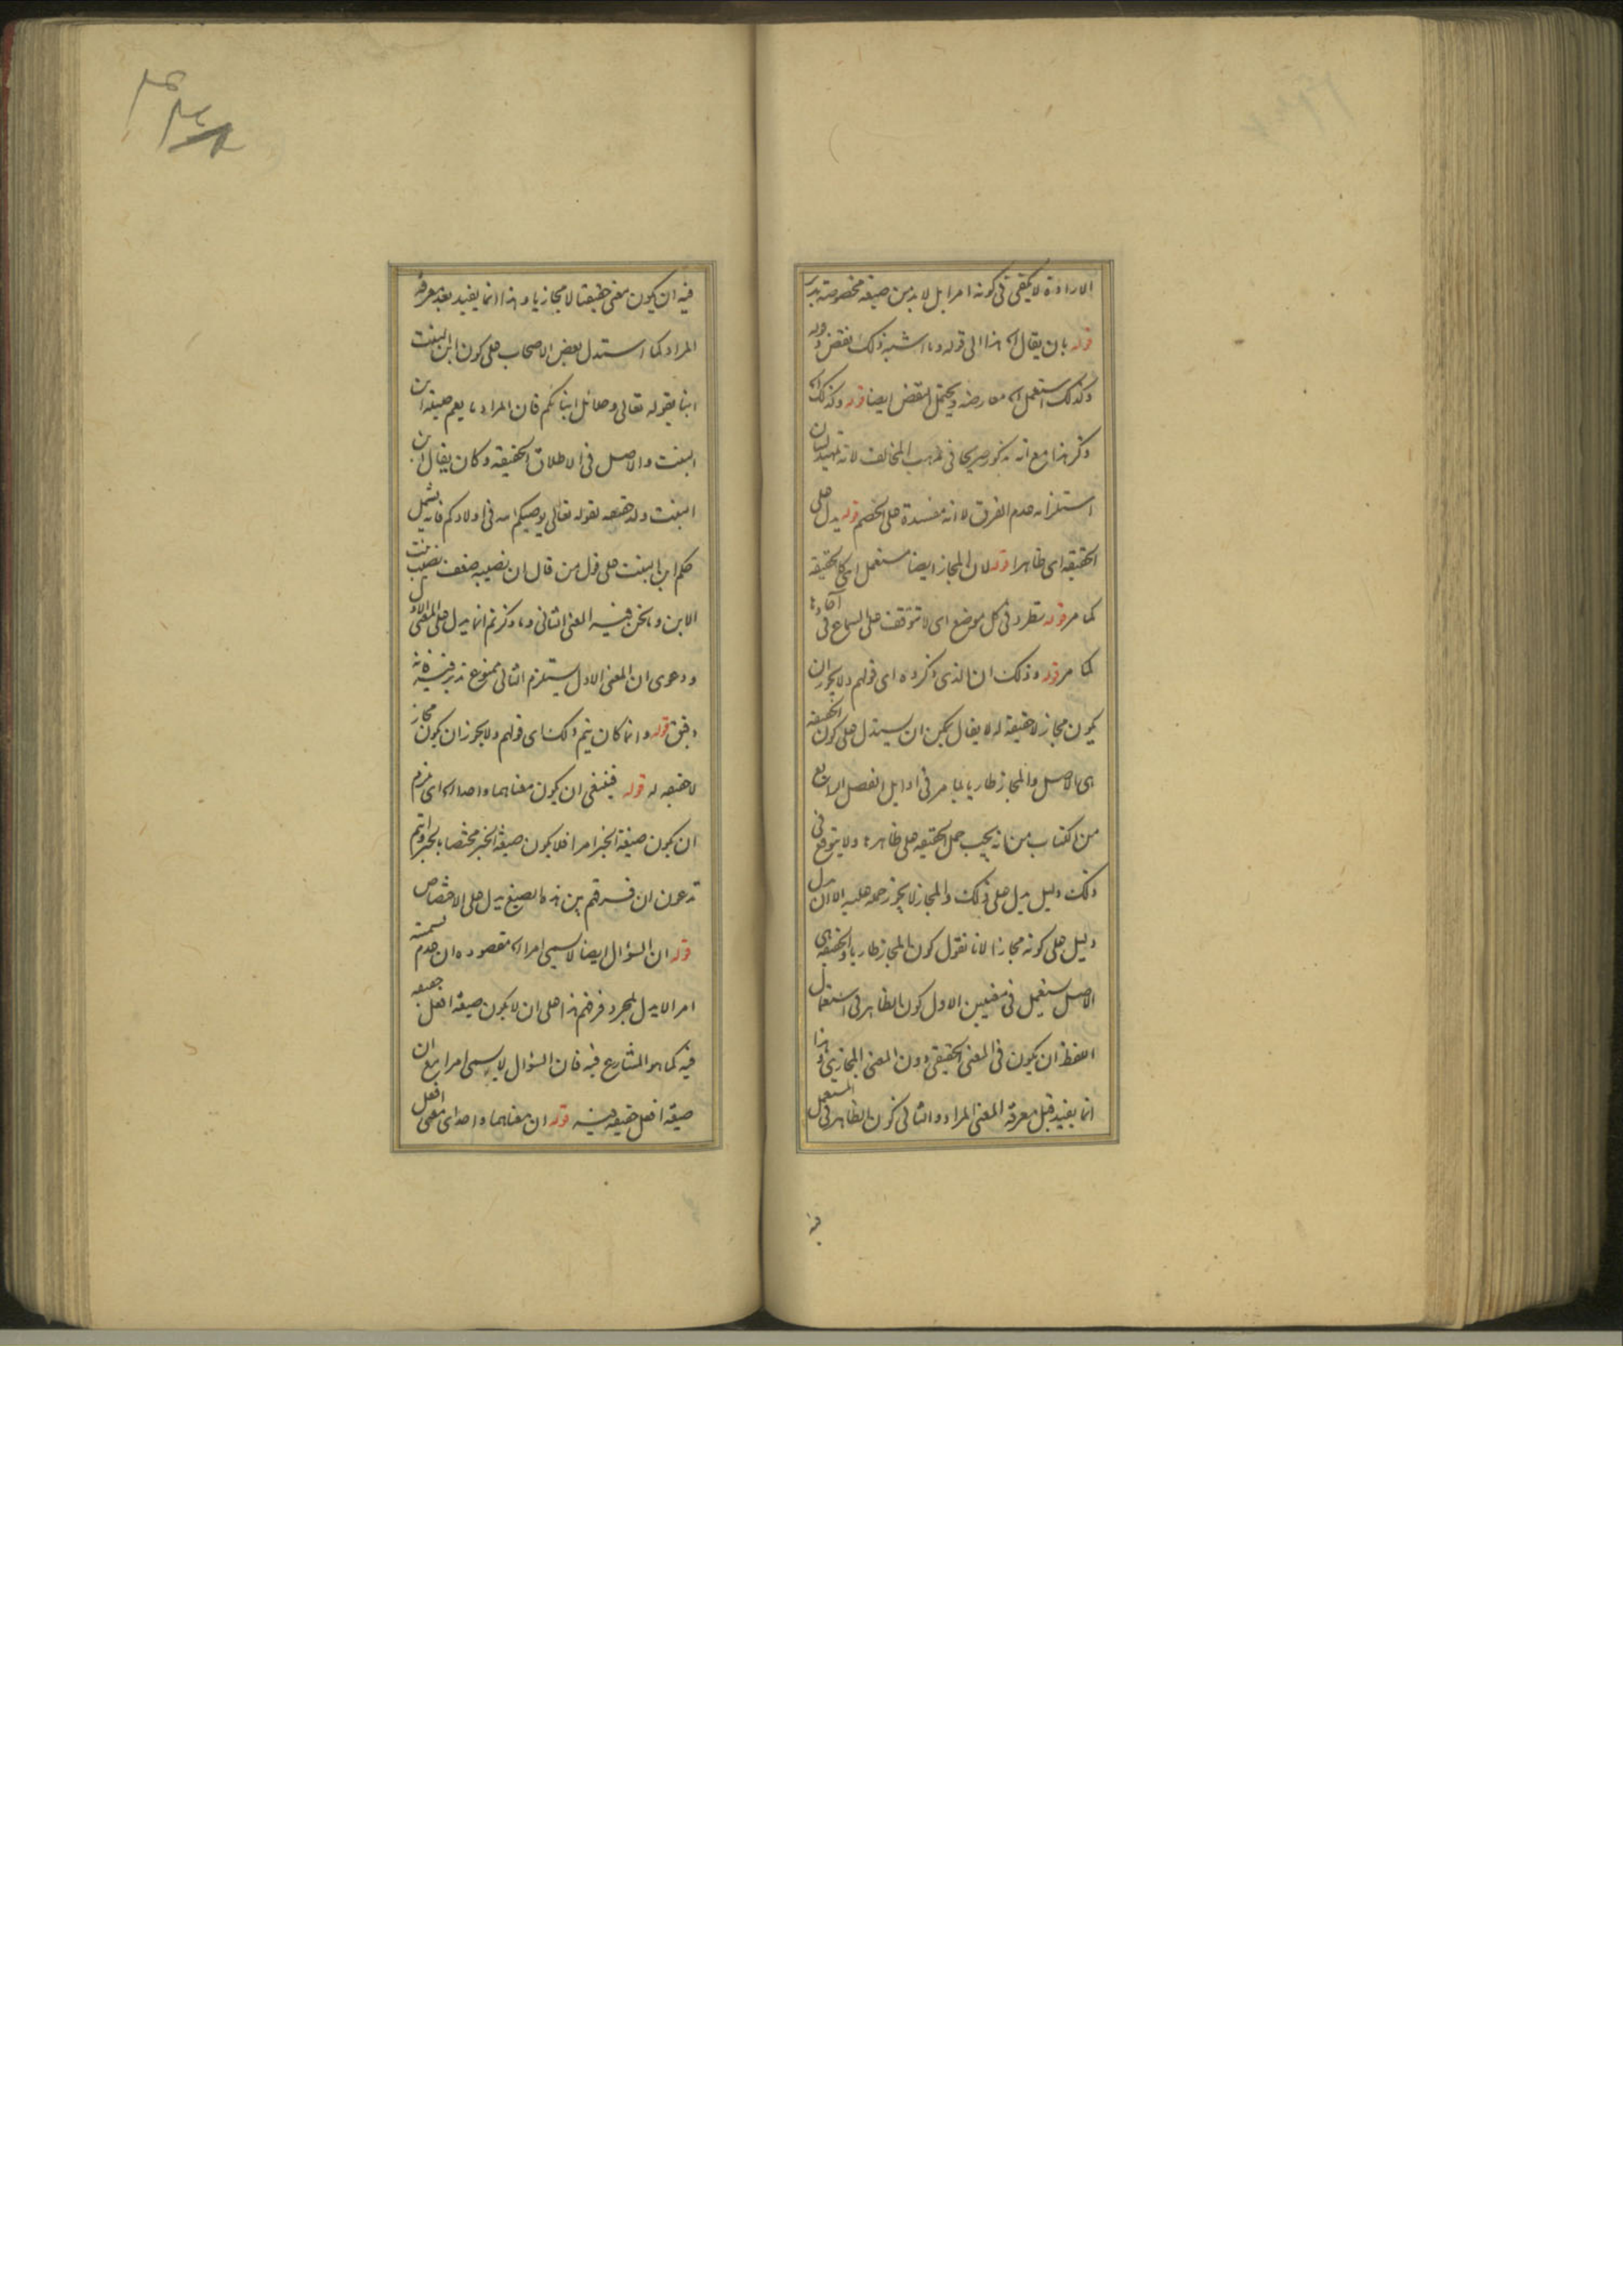 الارادة لا يكفى فى كونه امرا بل لا بد من صيغة مخصوصة تدبر
قوله بان يقال اه هذا الى قوله وما اشبه ذلك نقض قوله
وكذلك استعمل اه معارضه ويحتمل النقض ايضا قوله وكذلك اه
ذكر هذا مع انه مذكور صريحا فى مذهب المخالف لانه تمهيد لبيان
استلزامه عدم الفرق لا انه مفسدة على الخصم قوله يدل على
الحقيقة اى ظاهرا قوله لان المجاز ايضا مستعمل اى كالحقيقة
كما مر قوله تطرد فى كل موضع اى لا تتوقف على السماع فى آحادها
كما مر قوله وذلك ان الذى ذكروه اى قولهم ولا يجوز ان
يكون مجاز لا حقيقة له لا يقال يمكن ان يستدل على كون الحقيقة
هى الاصل والمجاز طاريا بما مر فى اوايل الفصل الرابع
من الكتاب من انه يجب حمل الحقيقة على ظاهرها ولا يتوقع فى
ذلك دليل يدل على ذلك والمجاز لا يجوز حمله عليه الا ان يدل
دليل على كونه مجازا لانا نقول كون المجاز طاريا والحقيقة هى
الاصل يستعمل فى معنيين الاول كون الظاهر فى استعمال
اللفظ ان يكون فى المعنى الحقيقى دون المعنى المجازى وهذا
انما يفيد قبل معرفة المعنى المراد والثانى كون الظاهر فى المستعمل
فيه
فيه ان يكون معنى حقيقيا لا مجازيا وهذا انما يفيد بعد معرفة
المراد كما استدل بعض الاصحاب على كون ابن البنت
ابنا بقوله تعالى وحلائل ابنائكم فان المراد ما يعم حليلة ابن
البنت والاصل فى الاطلاق الحقيقة وكان يقال ابن
البنت ولد حقيقة لقوله تعالى يوصيكم الله فى اولادكم فانه يشمل
حكم ابن البنت على قول من قال ان نصيبه ضعف نصيب بنت
الابن وما نحن فيه المعنى الثانى وما ذكرتم انما يدل على المعنى الاول
ودعوى ان المعنى الاول يستلزم الثانى ممنوع تدبر فيه فانه
دقيق قوله وانما كان يتم ذلك اى قولهم ولا يجوز ان يكون مجاز
لا حقيقة له قوله فينبغى ان يكون معناهما واحدا اه اى فيلزم
ان يكون صيغة الخبر امرا فلا يكون صيغة الخبر مختصا بالخبر وانتم
تدعون ان فرقهم بين هذه الصيغ يدل على الاختصاص
قوله ان السؤال ايضا لا يسمى امرا اه مقصوده ان عدم تسميته
امرا لا يدل بمجرد فرقهم هذا على ان لا يكون صيغة افعل حقيقة
فيه كما هو المتنازع فيه فان السؤال لا يسمى امرا مع ان
صيغة افعل حقيقة فيه قوله ان معناهما واحد اى معنى افعل